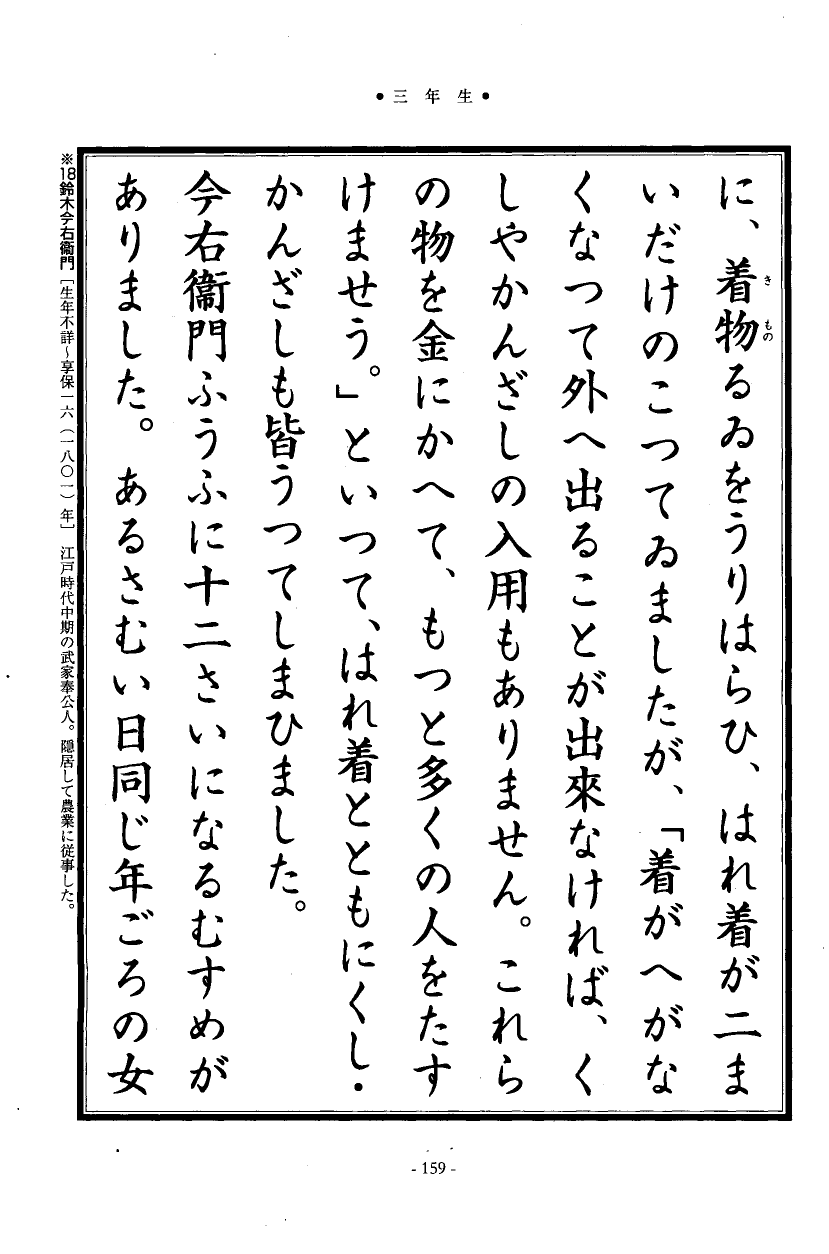 ●三年生●
に、着物るゐをうりはらひ、はれ着が二ま
きもの
いだけのこつてゐましたが、「着がへがな
くなつて外へ出ることが出來なければ、く
しやかんざしの入用もありません。これら
の物を金にかへて、もつと多くの人をたす
けませう。」といつて、はれ着とともにくし・
かんざしも皆うつてしまひました。
今右衞門ふうふに十二さいになるむすめが
ありました。あるさむい日同じ年ごろの女
※18鈴木今右衞門［生年不詳～享保一六（一八〇一）年］　江戸時代中期の武家奉公人。隠居して農業に従事した。
- 159 -